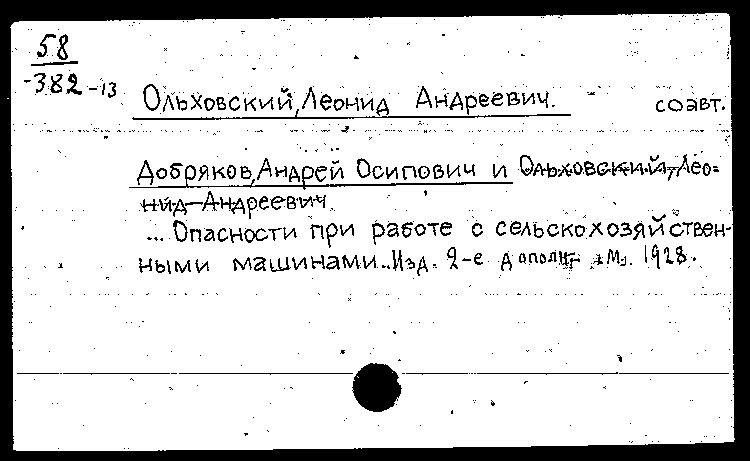 58
-382-13
Ольховский, Леонид Андреевич. соавт.
Добряков, Андрей Осипович и Ольховский, Лео-
нид Андреевич.
... Опасности при работе с сельскохозяйствен-
ными машинами.. Изд. 2-е дополн. М. 1928.